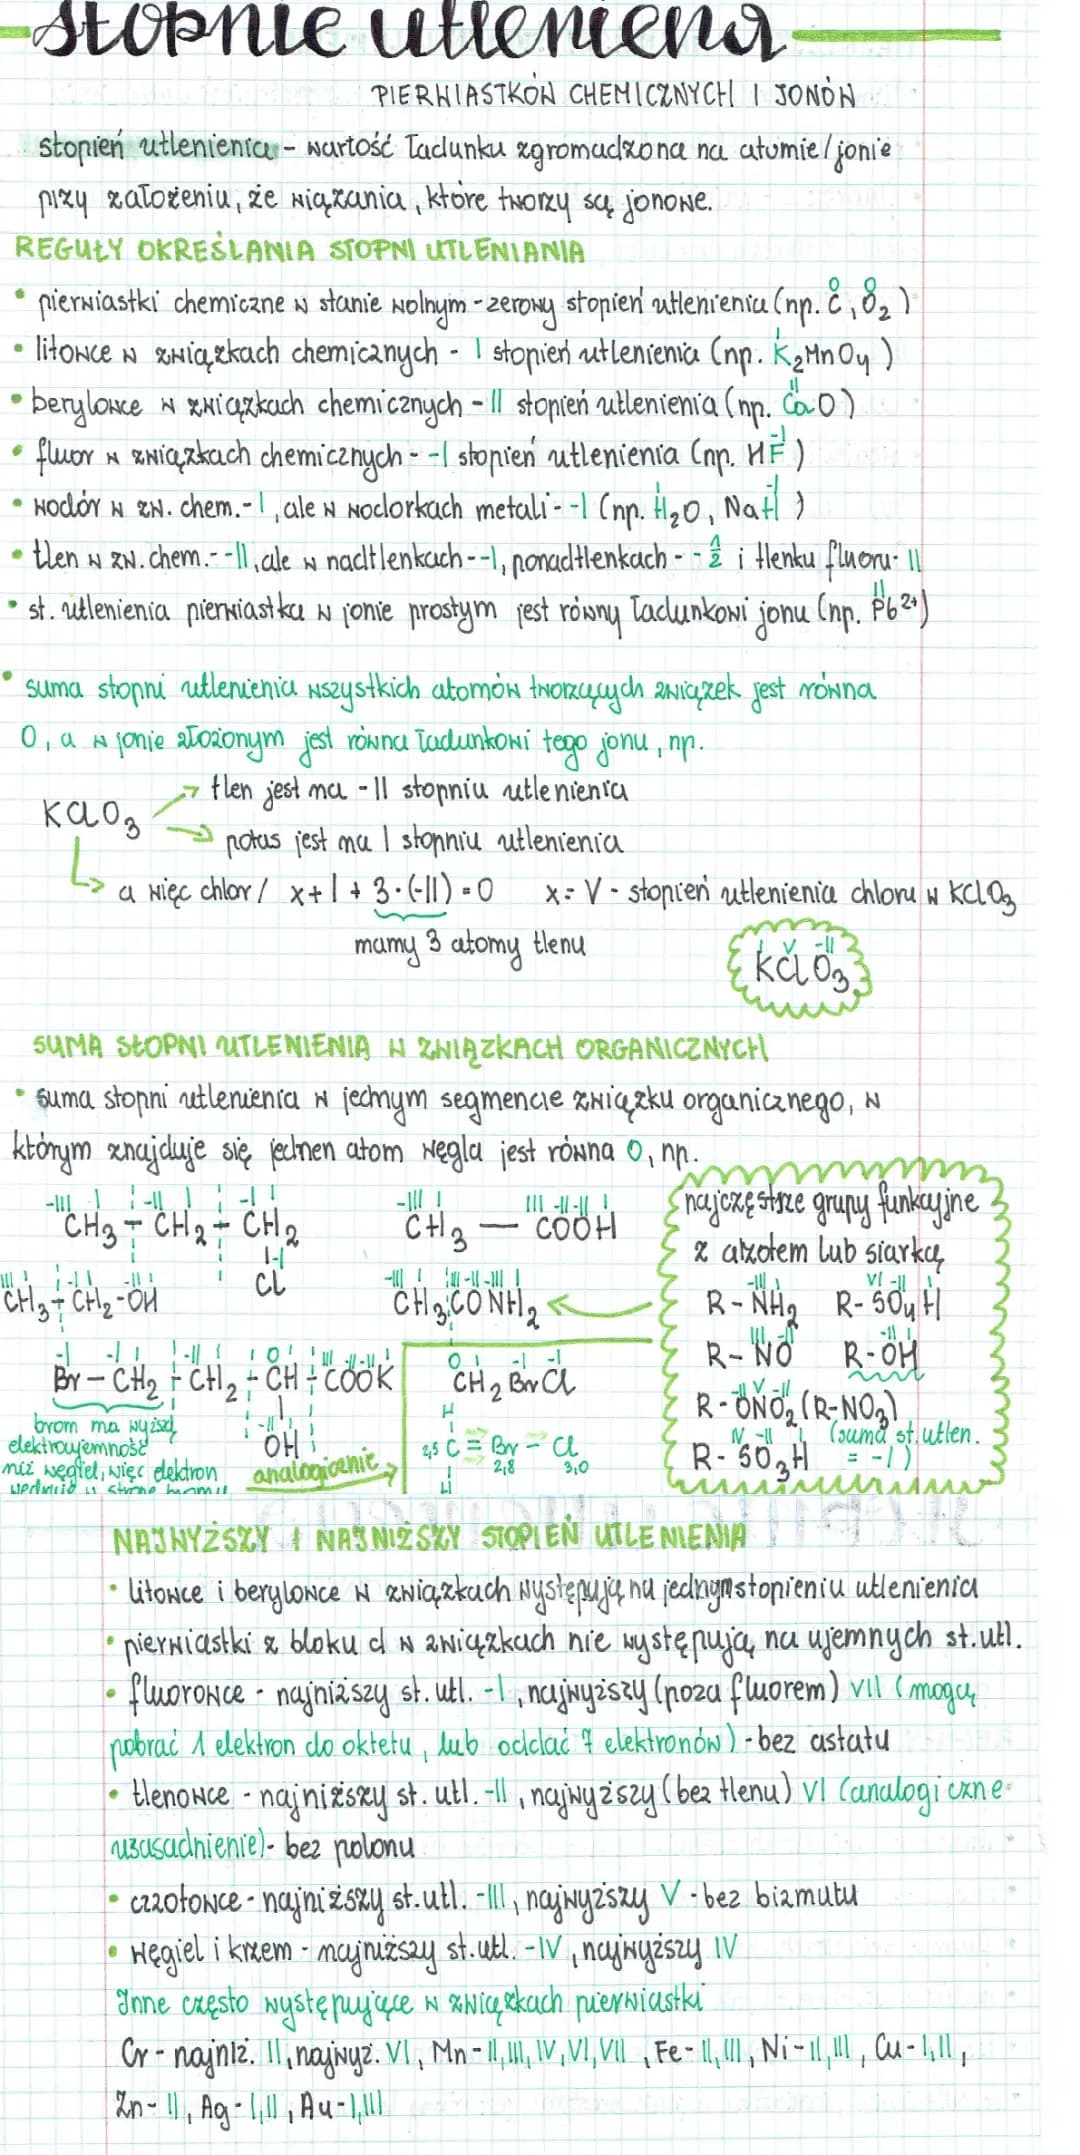 stopnie utlenienia
PIERWIASTKÓW CHEMICZNYCH I JONÓW
stopień utlenienia - wartość ładunku zgromadzona na atomie/jonie
przy założeniu, że wiązania, które tworzy są jonowe.
REGUŁY OKREŚLANIA STOPNI UTLENIANIA
• pierwiastki chemiczne w stanie wolnym - zerowy stopień utlenienia (np. C, O₂)
0 0
• litowce w związkach chemicznych - I stopień utlenienia (np. K₂MnO₄)
I
• berylowce w związkach chemicznych - II stopień utlenienia (np. CaO)
II
• fluor w związkach chemicznych - -I stopień utlenienia (np. HF)
-I
• wodór w zw. chem. - I, ale w wodorkach metali - -I (np. H₂O, NaH)
I -I
• tlen w zw. chem. - -II, ale w nadtlenkach - -I, ponadtlenkach - -1/2 i tlenku fluoru - II
• st. utlenienia pierwiastka w jonie prostym jest równy ładunkowi jonu (np. Pb²⁺)
II
• suma stopni utlenienia wszystkich atomów tworzących związek jest równa
0, a w jonie złożonym jest równa ładunkowi tego jonu, np.
tlen jest na -II stopniu utlenienia
KClO₃
potas jest na I stopniu utlenienia
a więc chlor / x + I + 3·(-II) = 0 x = V - stopień utlenienia chloru w KClO₃
mamy 3 atomy tlenu
I V -II
KClO₃
SUMA STOPNI UTLENIENIA W ZWIĄZKACH ORGANICZNYCH
• suma stopni utlenienia w jednym segmencie związku organicznego, w
którym znajduje się jeden atom węgla jest równa 0, np.
-III I -II I -I I
CH₃ - CH₂ - CH₂
-I
Cl
-III I III -II -II I
CH₃ — COOH
-III I -I I -II I
CH₃ - CH₂ - OH
-III I III -II -III I
CH₃CONH₂
-I -I I -II I I 0 I III -II -II I
Br - CH₂ - CH₂ - CH - COOK
-II I
OH
brom ma wyższą
elektroujemność
niż węgiel, więc elektron
wędruje w stronę bromu
analogicznie
0 I -I -I
CH₂BrCl
H
2,5 C = Br - Cl
2,8 3,0
H
najczęstsze grupy funkcyjne
z azotem lub siarką
-III I VI -II I
R - NH₂ R - SO₄H
III -II -II I
R - NO R - OH
-II V -II
R - ONO₂ (R-NO₃)
IV -II I (suma st. utlen.
R - SO₃H = -I)
NAJWYŻSZY I NAJNIŻSZY STOPIEŃ UTLENIENIA
• litowce i berylowce w związkach występują na jednym stopieniu utlenienia
• pierwiastki z bloku d w związkach nie występują na ujemnych st. utl.
• fluorowce - najniższy st. utl. -I, najwyższy (poza fluorem) VII (mogą
pobrać 1 elektron do oktetu, lub oddać 7 elektronów) - bez astatu
• tlenowce - najniższy st. utl. -II, najwyższy (bez tlenu) VI (analogiczne
uzasadnienie) - bez polonu
• azotowce - najniższy st. utl. -III, najwyższy V - bez bizmutu
• węgiel i krzem - najniższy st. utl. -IV, najwyższy IV
Inne często występujące w związkach pierwiastki
Cr - najniż. II, najwyż. VI, Mn - II, III, IV, VI, VII, Fe - II, III, Ni - II, III, Cu - I, II,
Zn - II, Ag - I, II, Au - I, III